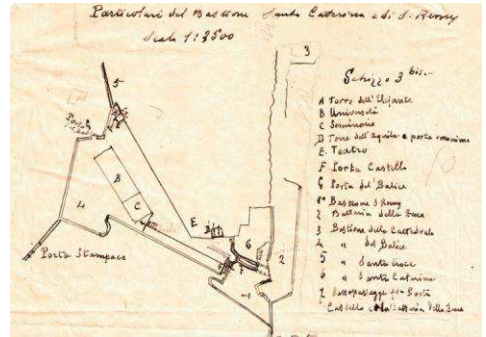 Particolari del Bastione Santa Caterina e di S. Remy
Scala 1:3500
Schizzo 3 bis.-
A Torre dell'Elefante
B Università
C Seminario
D Torre dell'Aquila e porta omonima
E. Teatro
F Porta Castello
G Porta del Balice
1 Bastione S Remy
2 Batteria della Zecca
3 Bastione della Cattedrale
4 " del Balice
5 " Santa Croce
6 " Santa Caterina
7 Sottopassaggio fra Porta
Castello e la Batteria della Zecca
3
5
A
B
C
4
E
D
6
2
1
Porta Stampace